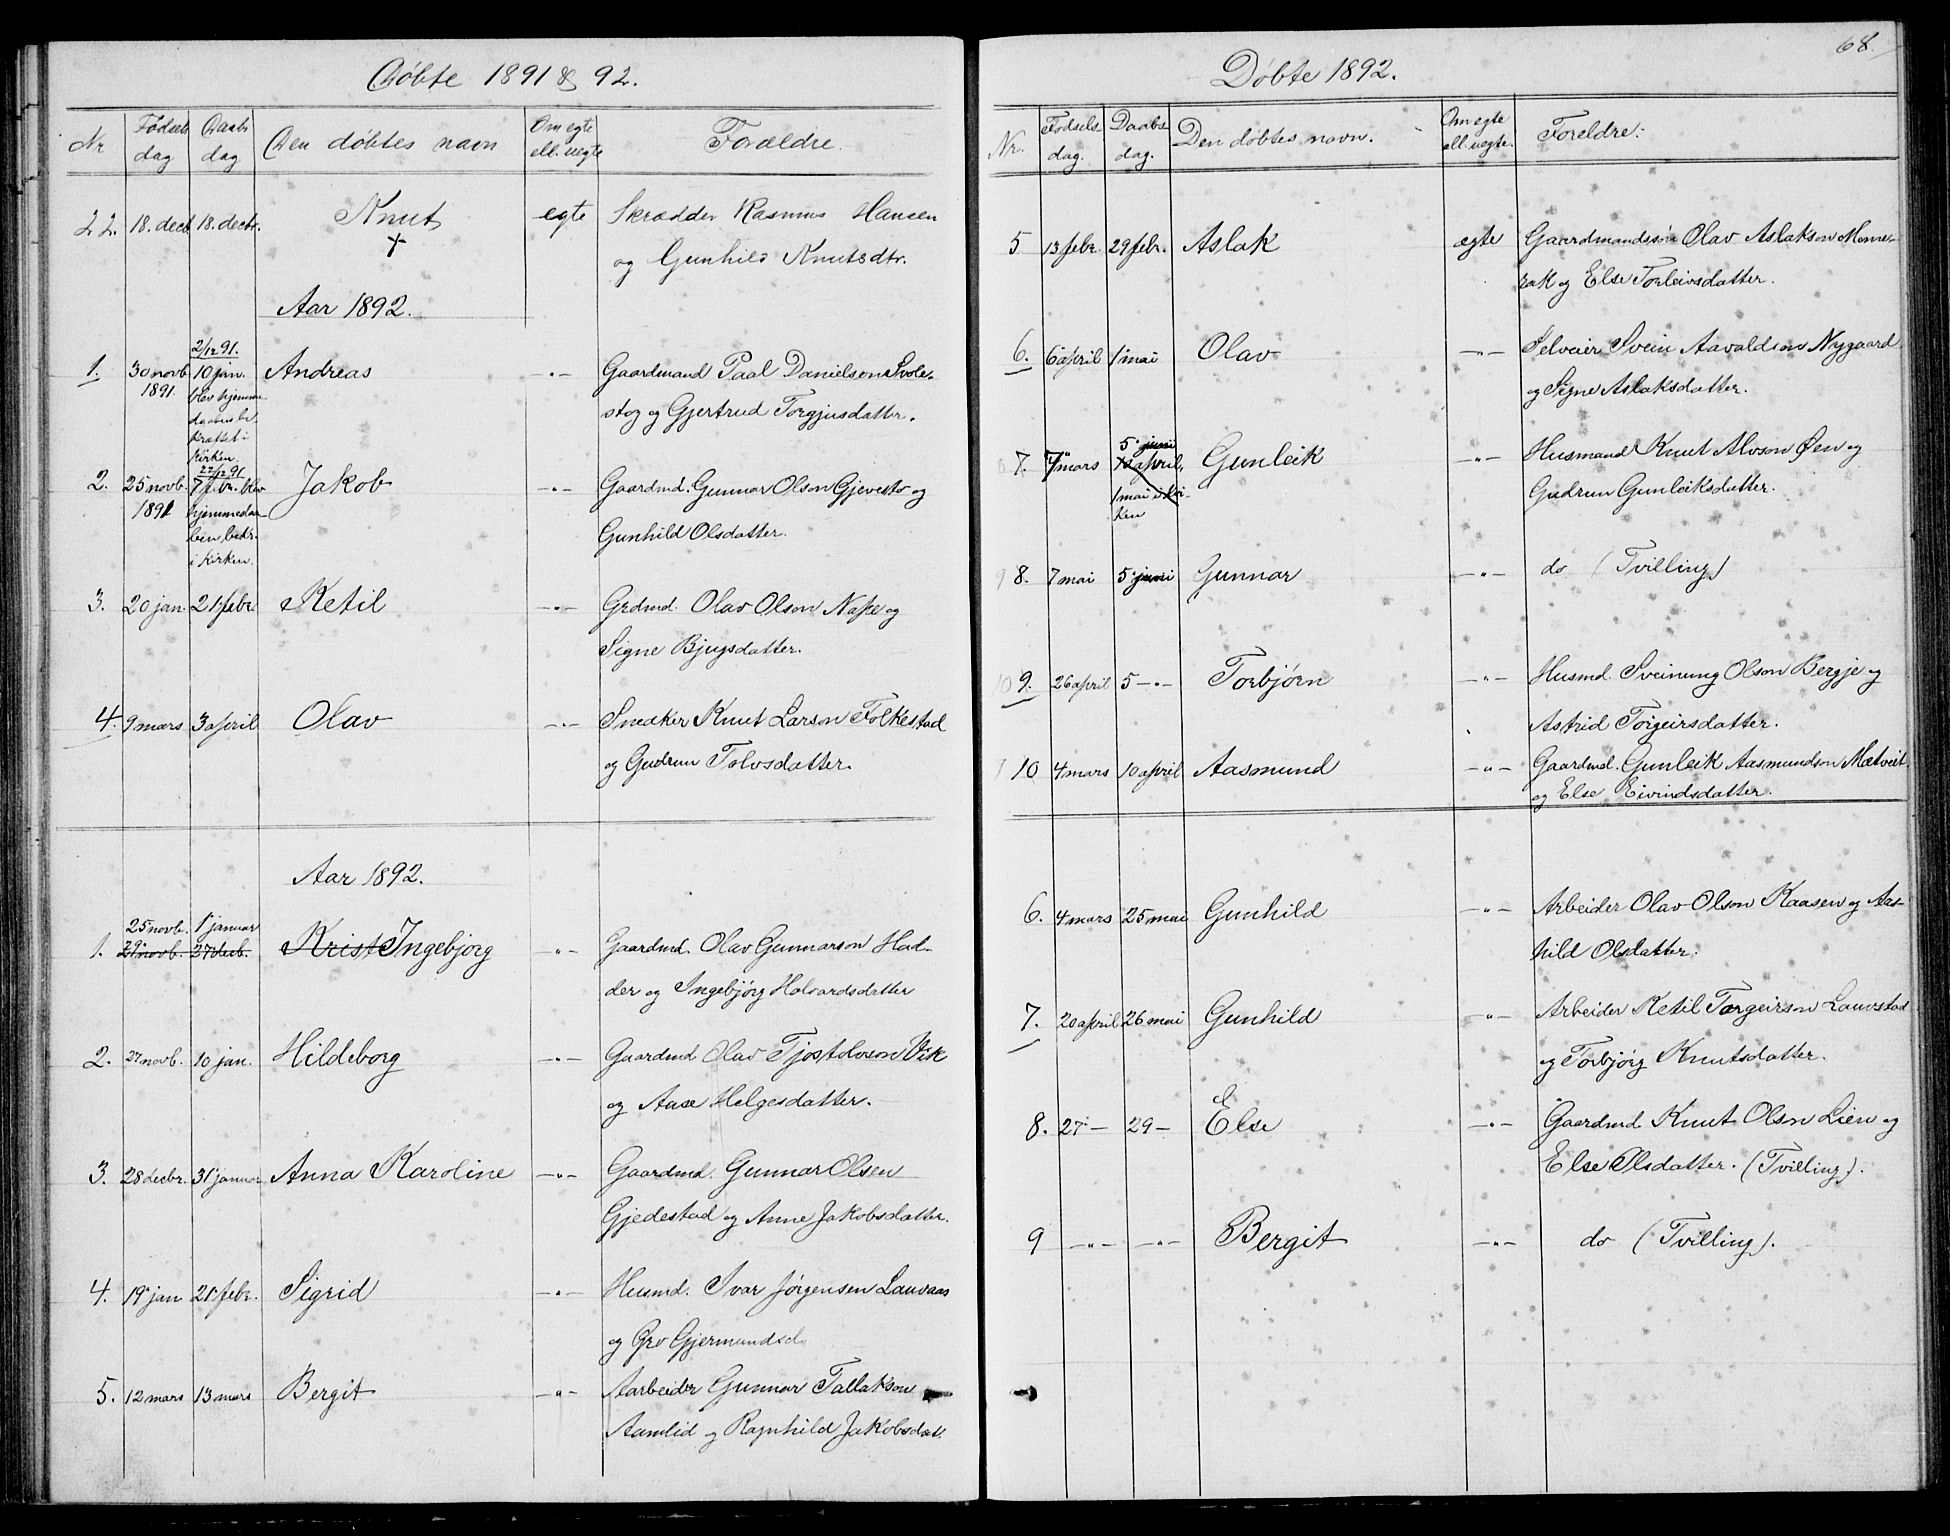 Døbte 1891 & 92.
Nr
Fødsels dag
Daabs dag
Den døbtes navn
Om egte ell. uegte
Forældre.
22. 18. decb. 18. decbr. Knut egte Skrædder Rasmus Hansen
+ og Gunhild Knutsdtr.
Aar 1892.
2/12 91.
1. 30 novb. 10 jan. Andreas -"- Gaardmand Paal Danielson Svole-
1891. blev hjemme
daaben be- stog og Gjertrud Torgjusdatter.
kræftet i
kirken.
22/12 91.
2. 25 novb. 7 febr. blev Jakob -"- Gaardmd. Gunnar Olson Gjevesto og
1891 hjemmedaa-
ben bekr. Gunhild Olsdatter.
i kirken.
3. 20 jan. 21 febr. Ketil -"- Grdmd. Olav Olson Nape og
Signe Bjugsdatter.
4. 9 mars 3 april Olav -"- Snedker Knut Larson Folkestad
og Gudrun Tolvsdatter.
Aar 1892.
25 novb. 1 januar
1. 29 novb. 27 decb. Krist Ingebjørg -"- Gaardmd. Olav Gunnarson Had-
der og Ingebjørg Halvardsdatter
2. 27 novb. 10 jan. Hildeborg -"- Gaardmd Olav Tjostolvson Vik
og Aase Helgesdatter.
3. 28 decbr. 31 januar Anna Karoline -"- Gaardmd. Gunnar Olsen
Gjedestad og Anne Jakobsdatter.
4. 19 jan 21 febr. Sigrid -"- Husmd. Ivar Jørgensen Lauvaas
og Gro Gjermundsd
5. 12 mars 13 mars Bergit -"- Aarbeider Gunnar Tallakson
Aamlid og Ragnhild Jakobsdat.
68.
Døbte 1892.
Nr.
Fødsels- dag.
Daabs- dag.
Den døbtes navn.
Om egte ell. uegte.
Foreldre:
5 13 febr. 29 febr. Aslak ægte Gaardmandssøn Olav Aslakson Mome-
rak og Else Torleivsdatter.
6. 6 april 1 mai Olav -"- Selveier Svein Aavaldson Nygaard
og Signe Aslaksdatter.
5 juni
7. 7 mars april, Gunleik -"- Husmand Knut Alvson Øen og
1 mai i kir-
ken Gudrun Gunleiksdatter.
9 8. 7 mai 5 juni Gunnar -"- do (Tvilling)
10 9. 26 april 5 -"- Torbjørn -"- Husmd. Sveinung Olson Bergje og
Astrid Torgeirsdatter.
10 4 mars 10 april Aasmund -"- Gaardmd. Gunleik Aasmundson Mætveit
og Else Eivindsdatter.
6. 4 mars 25 mai Gunhild -"- Arbeider Olav Olson Kaasen og Aas-
hild Olsdatter.
7. 20 april 26 mai Gunhild -"- Arbeider Ketil Torgeirson Lauvstad
og Torbjørg Knutsdatter.
8. 27 - 29 - Else -"- Gaardmd. Knut Olson Lien og
Else Olsdatter. (Tvilling).
9 -"- -"- Bergit -"- do (Tvilling).